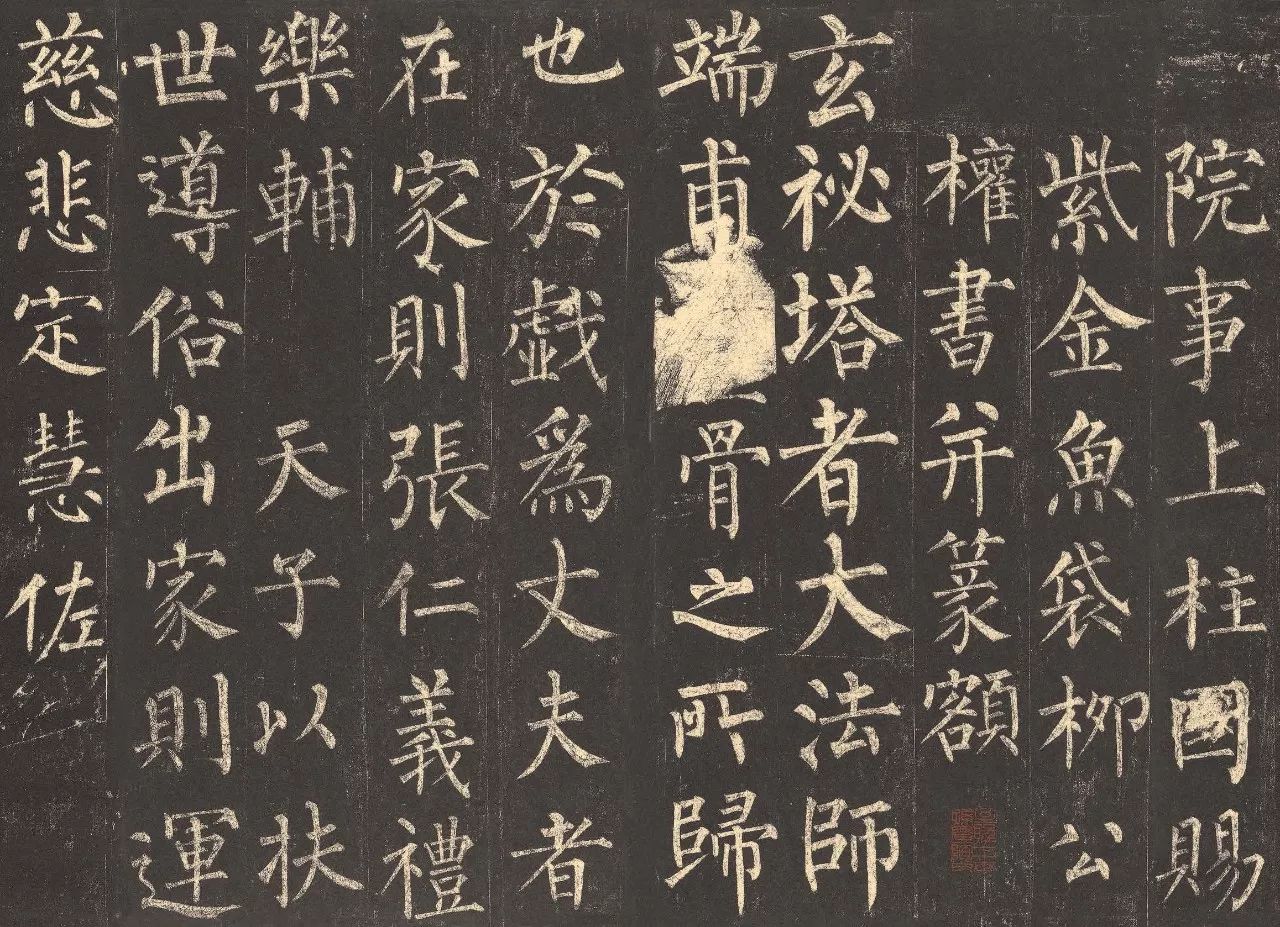 院事上柱國賜
紫金魚袋柳公
權書并篆額
玄祕塔者大法師
端甫骨之所歸
也於戲為丈夫者
在家則張仁義禮
樂輔天子以扶
世導俗出家則運
慈悲定慧佐